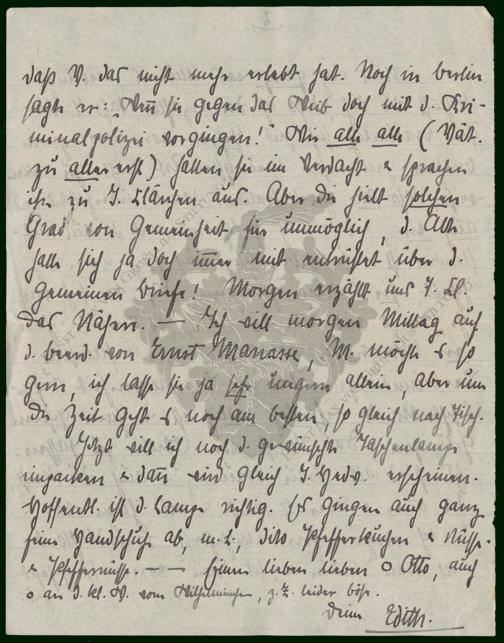 daß V. das nicht mehr erlebt hat. Noch in Berlin
sagte er: "Wenn sie gegen das Weib doch mit d. Kri-
minalpolizei vorgingen!" Wir alle alle (Vät.
zu allererst) hatten sie im Verdacht & sprachen
es zu T. Klärchen aus. Aber die hielt solchen
Grad von Gemeinheit für unmöglich, d. Alte
hatte sich ja doch immer mit entrüstet über d.
gemeinen Briefe! Morgen erzählt uns T. Kl.
das Nähere. — Ich will morgen Mittag auf
d. beerd. von Ernst Manasse, M. möchte es so
gern, ich lasse sie ja sehr ungern allein, aber um
die Zeit geht es noch am besten, so gleich nach Tisch.
Jetzt will ich noch d. gewünschte Taschenlampe
einpacken & dann wird gleich T. Hedw. erscheinen.
Hoffentl. ist d. Lampe richtig. Es gingen auch ganz
feine Handschuhe ab, dito Pfefferkuchen & Nüsse
& Pfeffernüsse. — — Einen lieben lieben o Otto, auch
o an d. kl. W. vom Wilhelminchen, z. Z. leider böse.
Deine Edith.